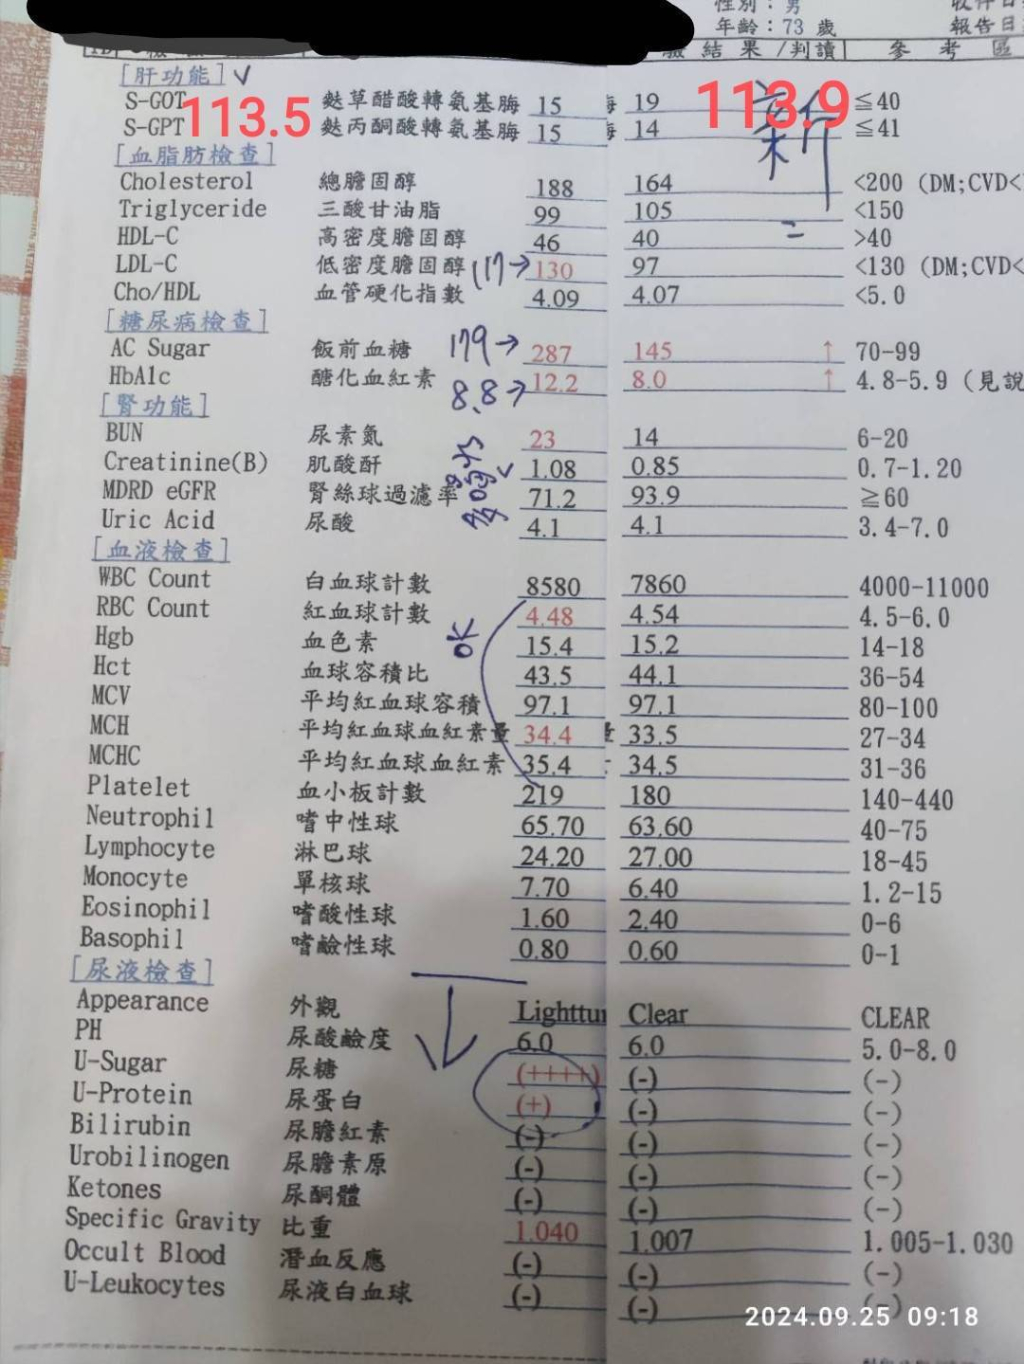 性別：男
年齡：73 歲
報告日
結 果 /判讀| 參 考 區
[肝功能] ✓
S-GOT 113.5 麩草醋酸轉氨基脢 15 19 113.9 新 ≦40
S-GPT 麩丙酮酸轉氨基脢 15 14 ≦41
[血脂肪檢查]
Cholesterol 總膽固醇 188 164 <200 (DM;CVD<
Triglyceride 三酸甘油脂 99 105 <150
HDL-C 高密度膽固醇 46 40 >40
LDL-C 低密度膽固醇 117→ 130 97 <130 (DM;CVD<
Cho/HDL 血管硬化指數 4.09 4.07 <5.0
[糖尿病檢查]
AC Sugar 飯前血糖 179→ 287 145 ↑ 70-99
HbA1c 醣化血紅素 8.8→ 12.2 8.0 ↑ 4.8-5.9 (見說
[腎功能]
BUN 尿素氮 23 14 6-20
Creatinine(B) 肌酸酐 1.08 0.85 0.7-1.20
MDRD eGFR 腎絲球過濾率 71.2 93.9 ≧60
Uric Acid 尿酸 4.1 4.1 3.4-7.0
[血液檢查]
WBC Count 白血球計數 8580 7860 4000-11000
RBC Count 紅血球計數 4.48 4.54 4.5-6.0
Hgb 血色素 OK 15.4 15.2 14-18
Hct 血球容積比 43.5 44.1 36-54
MCV 平均紅血球容積 97.1 97.1 80-100
MCH 平均紅血球血紅素量 34.4 33.5 27-34
MCHC 平均紅血球血紅素 35.4 34.5 31-36
Platelet 血小板計數 219 180 140-440
Neutrophil 嗜中性球 65.70 63.60 40-75
Lymphocyte 淋巴球 24.20 27.00 18-45
Monocyte 單核球 7.70 6.40 1.2-15
Eosinophil 嗜酸性球 1.60 2.40 0-6
Basophil 嗜鹼性球 0.80 0.60 0-1
[尿液檢查]
Appearance 外觀 Lighttur Clear CLEAR
PH 尿酸鹼度 6.0 6.0 5.0-8.0
U-Sugar 尿糖 (++++) (-) (-)
U-Protein 尿蛋白 (+) (-) (-)
Bilirubin 尿膽紅素 (-) (-) (-)
Urobilinogen 尿膽素原 (-) (-) (-)
Ketones 尿酮體 (-) (-) (-)
Specific Gravity 比重 1.040 1.007 1.005-1.030
Occult Blood 潛血反應 (-) (-) (-)
U-Leukocytes 尿液白血球 (-) (-) (-)
2024.09.25 09:18